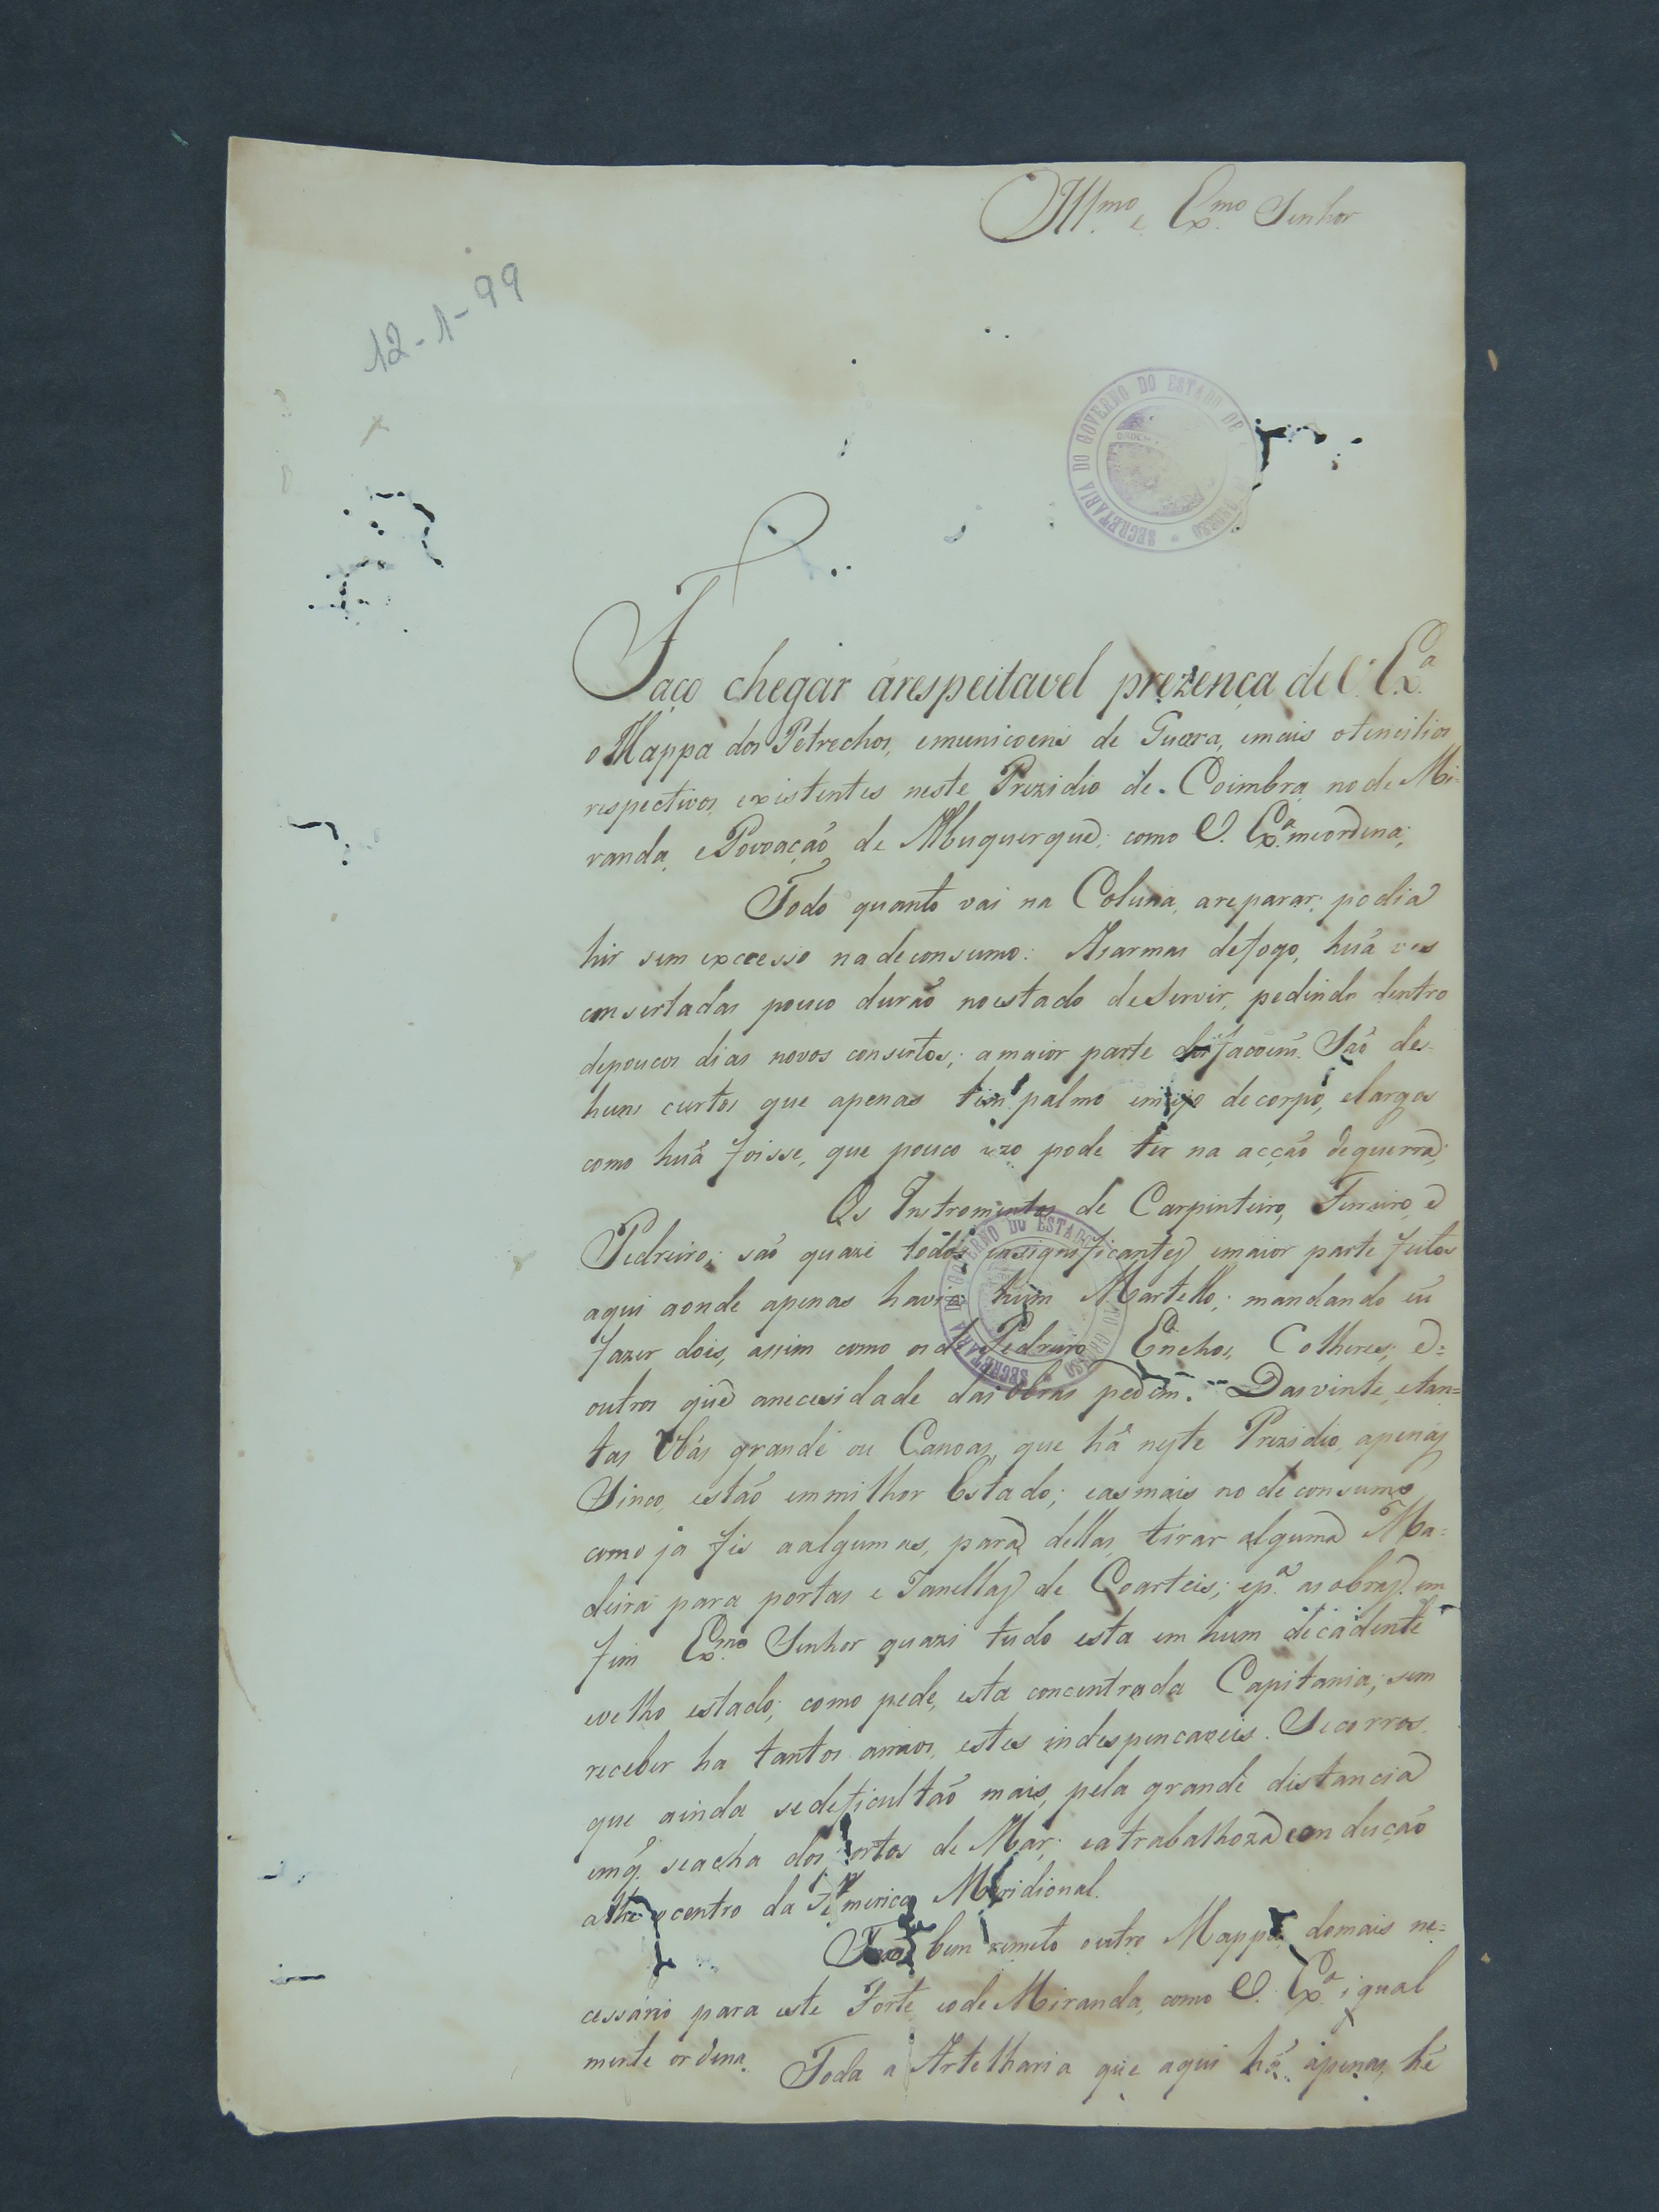 Ill.mo e Ex.mo Senhor
12-1-99
SECRETARIA DO GOVERNO DO ESTADO DE
Faço chegar árespeitavel prezença de V. Ex.ª
o Mappa dos Petrechos, emunicoens de Guerra, emais otencilios
respectivos, existentes neste Prezidio de Coimbra, no de Mi-
randa, e Povoação de Albuquerque; como V. Ex.ª meordena;
Todo quanto vai na Coluna, areparar; podia
hir sem excesso na deconsumo: Asarmas defogo, huã ves
consertadas pouco durão noestado deServir, pedindo dentro
depoucos dias novos consertos; amaior parte dosfacoens São de
huns curtos que apenas tem palmo emeyo decorpo, elargos
como huã foisse, que pouco uzo pode ter na acção deguerra;
Os Instromentos de Carpinteiro, Ferreiro, e
Pedreiro; são quaze todos insignificantes emaior parte feitos
aqui aonde apenas havia hum Martello; mandando eu
fazer dois, assim como os de Pedreiro Enchos, Colheres; e=
outros que anecesidade das obras pedem. Das vinte, etan=
tas Ubás grande ou Canoas, que há neste Prezidio, apenas
Sinco, estão emmilhor Estado; easmais no de consumo,
como já fis aalgumas, para dellas tirar alguma Ma=
deira para portas e Janellas de Coarteis; ep.ª as obras. em
fim Ex.mo Senhor quazi tudo esta em hum decadente
evelho estado; como pede, esta concentrada Capitania; sem
receber ha tantos annos, estes indespencaveis Secorros.
que ainda sedeficultão mais, pela grande distancia
emq. seacha dos Portos de Mar; eatrabalhoza condução
athe o centro da America Meridional.
Tão bem remeto outro Mappa, domais ne=
cessário para este Forte, eode Miranda, como V. Ex.ª igual
mente ordena. Toda a Artelharia que aqui há apenas, hé